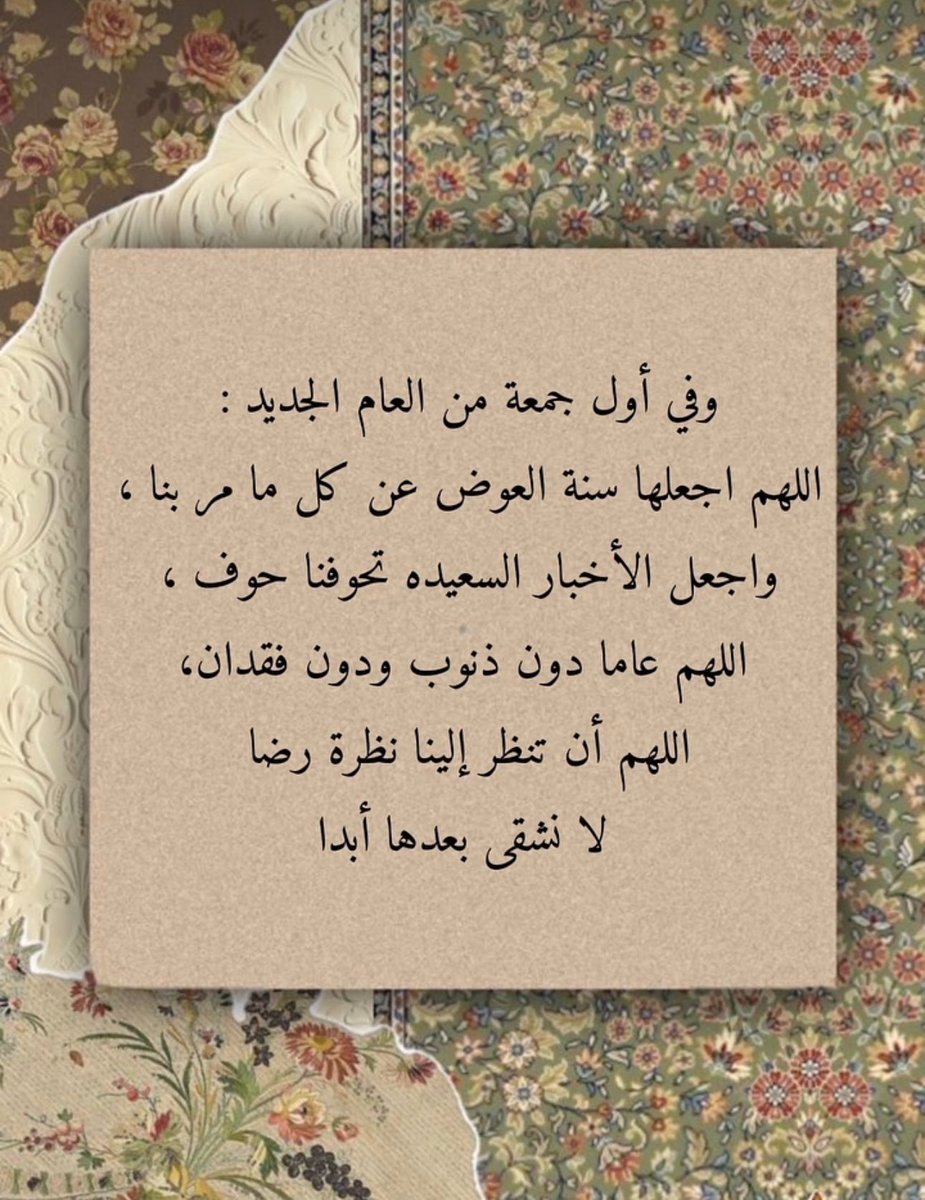 وفي أول جمعة من العام الجديد :
اللهم اجعلها سنة العوض عن كل ما مر بنا ،
واجعل الأخبار السعيده تحوفنا حوف ،
اللهم عاما دون ذنوب ودون فقدان،
اللهم أن تنظر إلينا نظرة رضا
لا نشقى بعدها أبدا